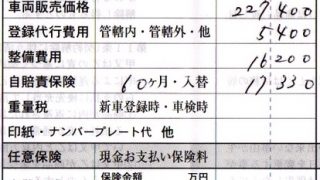 車両販売価格 227400
登録代行費用 管轄内・管轄外・他 5400
整備費用 16200
自賠責保険 60ヶ月・入替 17330
重量税 新車登録時・車検時
印紙・ナンバープレート代 他
任意保険 現金お支払い保険料
保険金額 万円